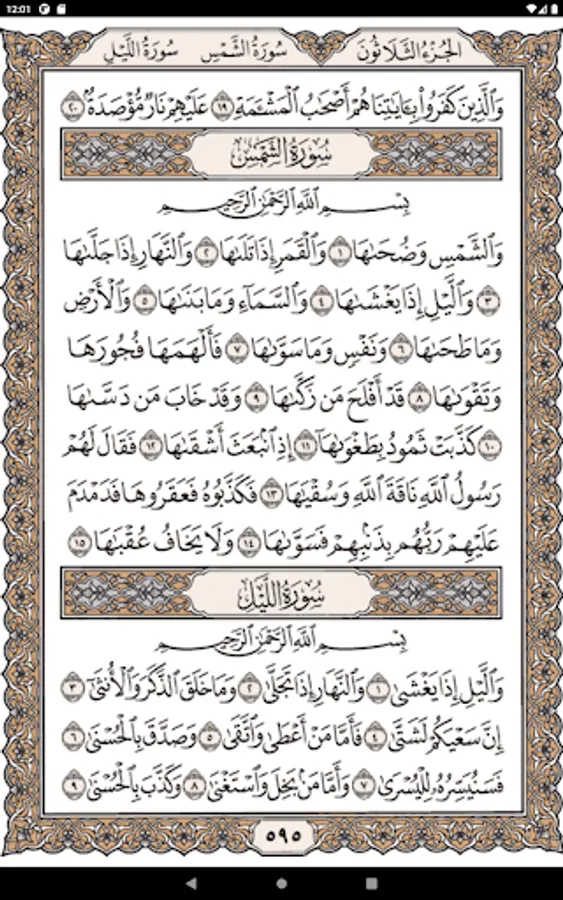 12:01
الجزء الثلاثون سورة الشمس سورة الليل
وَٱلَّذِينَ كَفَرُوا۟ بِـَٔايَـٰتِنَا هُمْ أَصْحَـٰبُ ٱلْمَشْـَٔمَةِ ١٩ عَلَيْهِمْ نَارٌ مُّؤْصَدَةٌۢ ٢٠
سُورَةُ الشَّمْسِ
بِسْمِ ٱللَّهِ ٱلرَّحْمَـٰنِ ٱلرَّحِيمِ
وَٱلشَّمْسِ وَضُحَىٰهَا ١ وَٱلْقَمَرِ إِذَا تَلَىٰهَا ٢ وَٱلنَّهَارِ إِذَا جَلَّىٰهَا
٣ وَٱلَّيْلِ إِذَا يَغْشَىٰهَا ٤ وَٱلسَّمَآءِ وَمَا بَنَىٰهَا ٥ وَٱلْأَرْضِ
وَمَا طَحَىٰهَا ٦ وَنَفْسٍ وَمَا سَوَّىٰهَا ٧ فَأَلْهَمَهَا فُجُورَهَا
وَتَقْوَىٰهَا ٨ قَدْ أَفْلَحَ مَن زَكَّىٰهَا ٩ وَقَدْ خَابَ مَن دَسَّىٰهَا
١٠ كَذَّبَتْ ثَمُودُ بِطَغْوَىٰهَآ ١١ إِذِ ٱنۢبَعَثَ أَشْقَىٰهَا ١٢ فَقَالَ لَهُمْ
رَسُولُ ٱللَّهِ نَاقَةَ ٱللَّهِ وَسُقْيَـٰهَا ١٣ فَكَذَّبُوهُ فَعَقَرُوهَا فَدَمْدَمَ
عَلَيْهِمْ رَبُّهُم بِذَنۢبِهِمْ فَسَوَّىٰهَا ١٤ وَلَا يَخَافُ عُقْبَـٰهَا ١٥
سُورَةُ اللَّيْلِ
بِسْمِ ٱللَّهِ ٱلرَّحْمَـٰنِ ٱلرَّحِيمِ
وَٱلَّيْلِ إِذَا يَغْشَىٰ ١ وَٱلنَّهَارِ إِذَا تَجَلَّىٰ ٢ وَمَا خَلَقَ ٱلذَّكَرَ وَٱلْأُنثَىٰٓ ٣
إِنَّ سَعْيَكُمْ لَشَتَّىٰ ٤ فَأَمَّا مَنْ أَعْطَىٰ وَٱتَّقَىٰ ٥ وَصَدَّقَ بِٱلْحُسْنَىٰ ٦
فَسَنُيَسِّرُهُۥ لِلْيُسْرَىٰ ٧ وَأَمَّا مَنۢ بَخِلَ وَٱسْتَغْنَىٰ ٨ وَكَذَّبَ بِٱلْحُسْنَىٰ ٩
٥٩٥